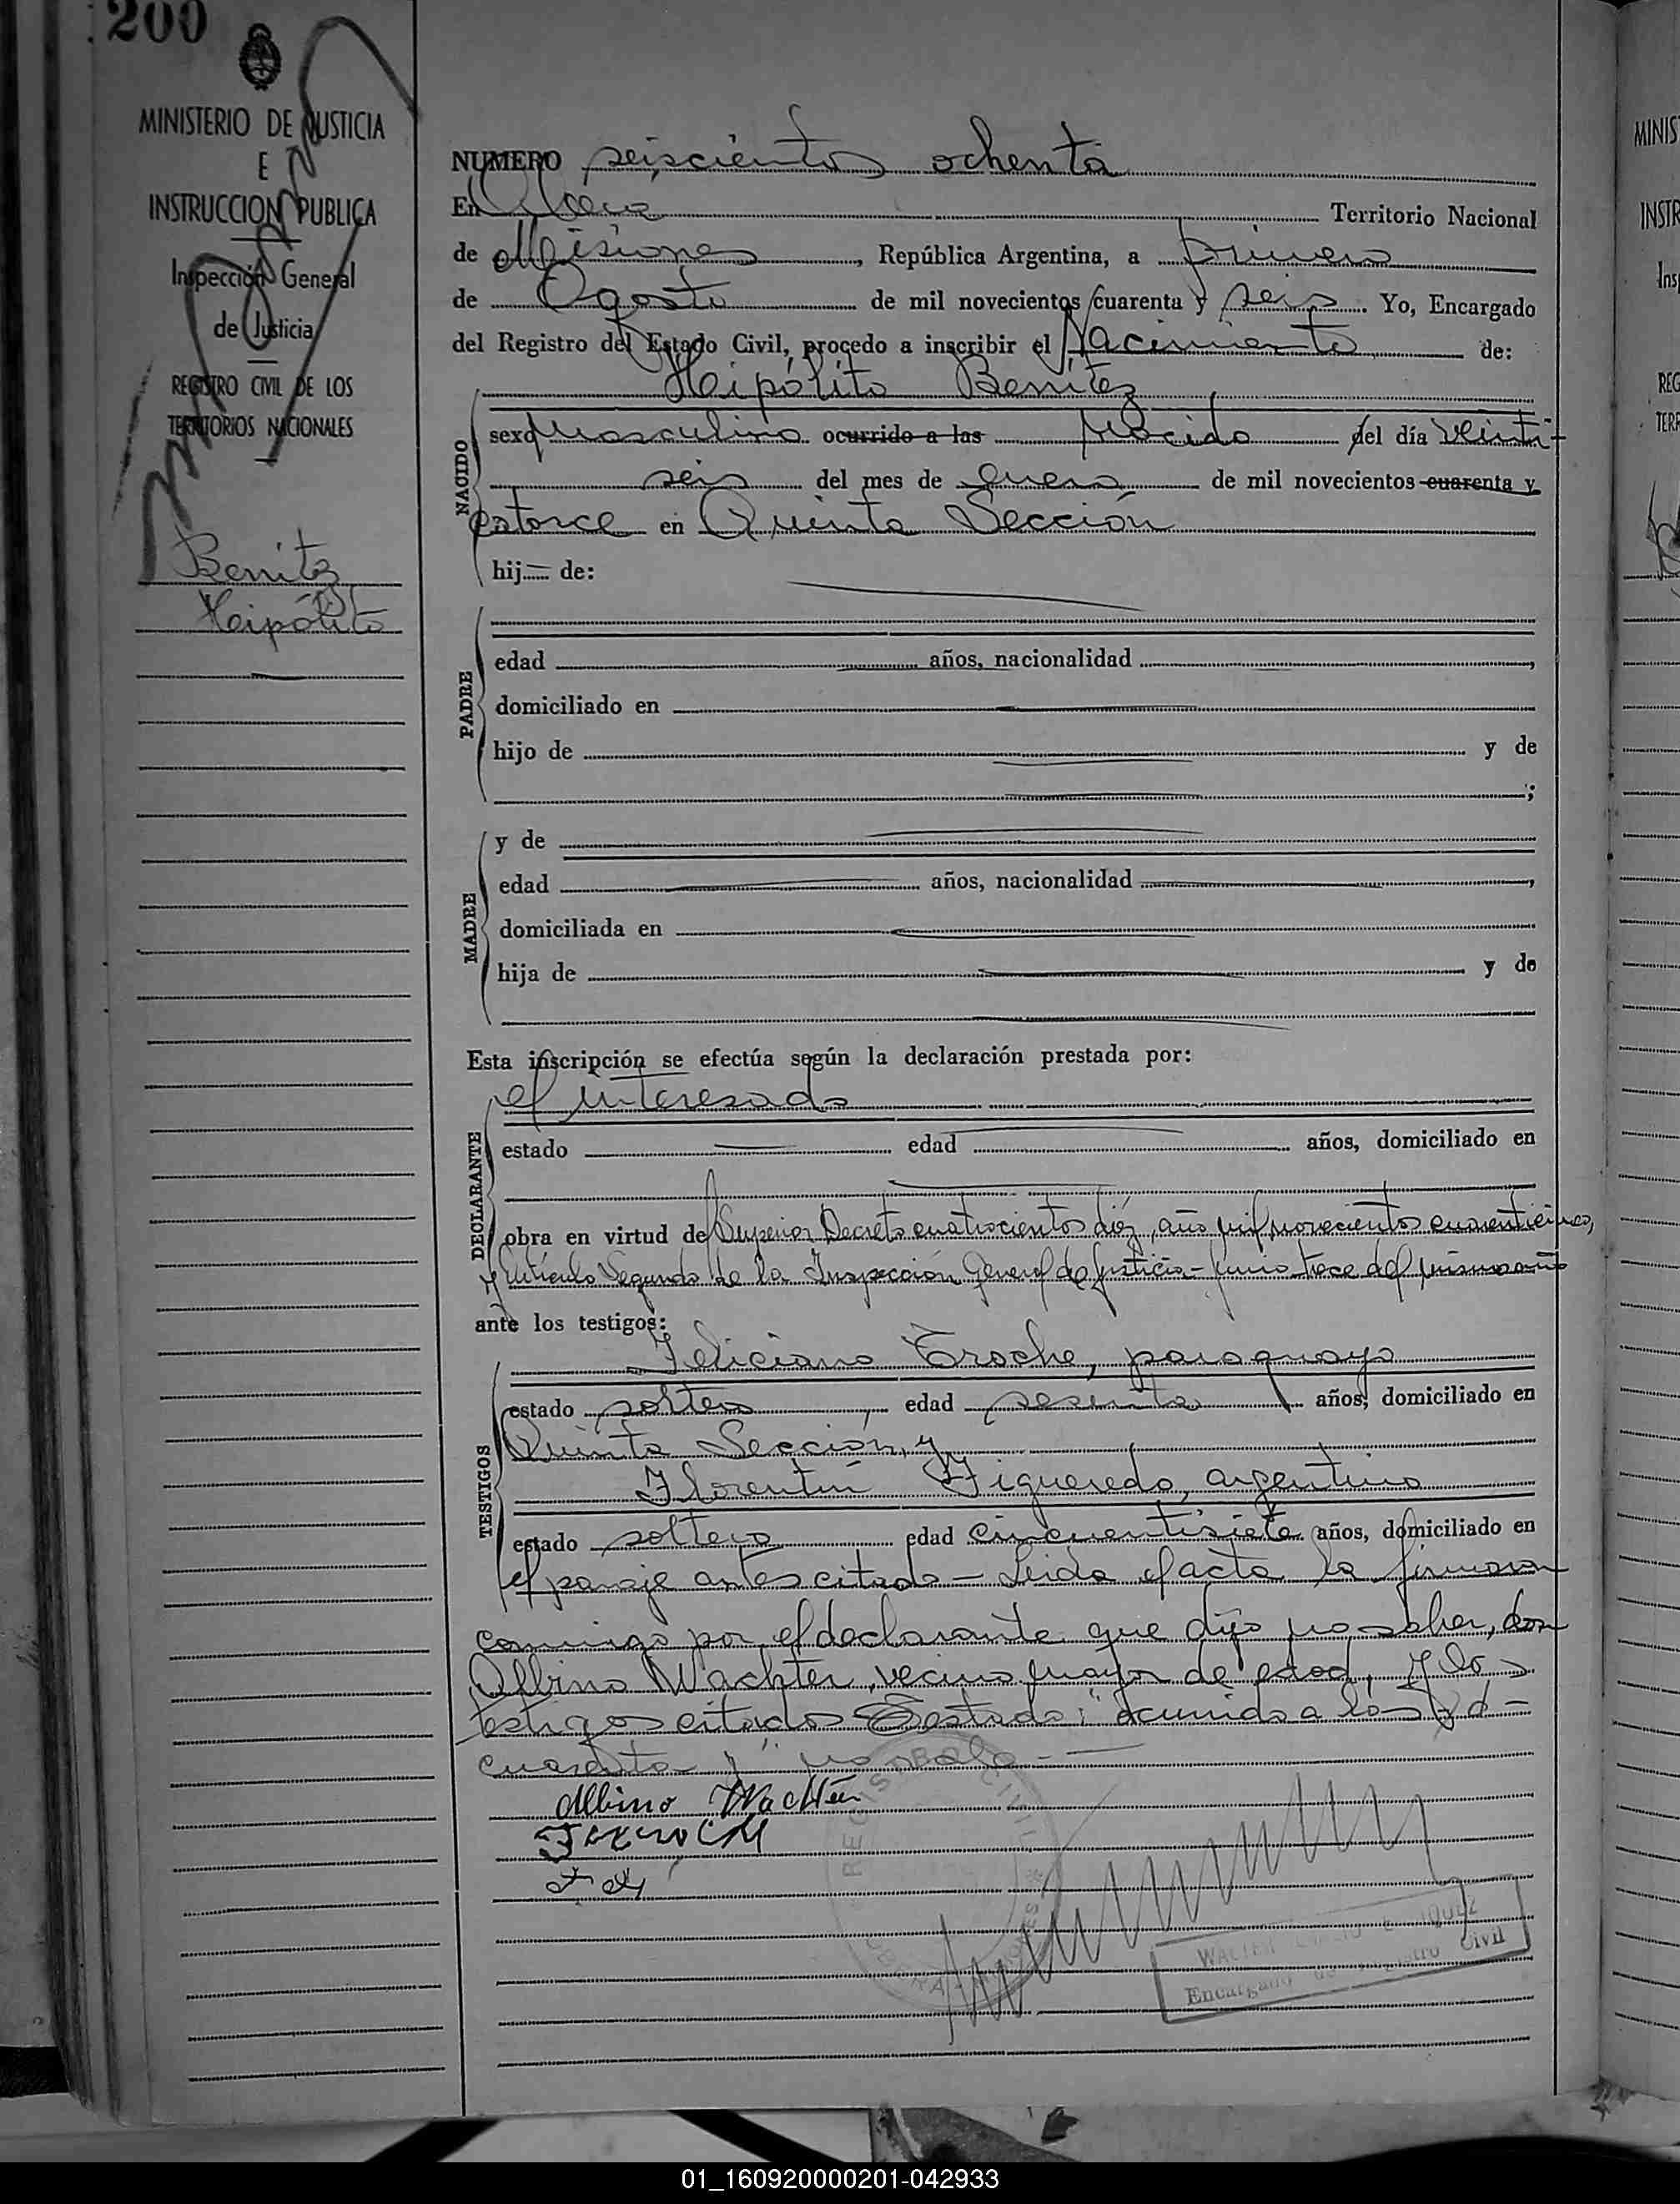 200
MINISTERIO DE JUSTICIA
E
INSTRUCCION PUBLICA
Inspección General
de Justicia
REGISTRO CIVIL DE LOS
TERRITORIOS NACIONALES
Benitez
Heipólito
NUMERO seiscientos ochenta
En Oberá Territorio Nacional
de Misiones, República Argentina, a primero
de Agosto de mil novecientos cuarenta y seis. Yo, Encargado
del Registro del Estado Civil, procedo a inscribir el Nacimiento de:
Heipólito Benítez
NACIDO
sexo Masculino ocurrido a las Nacido del día veinti-
seis del mes de enero de mil novecientos cuarenta y
catorce en Quinta Sección
hij de:
PADRE
edad años, nacionalidad ,
domiciliado en
hijo de y de
;
MADRE
y de
edad años, nacionalidad ,
domiciliada en
hija de y de
Esta inscripción se efectúa según la declaración prestada por:
DECLARANTE
el interesado
estado edad años, domiciliado en
obra en virtud del Superior Decreto cuatrocientos diez, año mil novecientos cuarenticinco,
y Artículo Segundo de la Inspección General de Justicia - Junio trece del mismo año
ante los testigos:
TESTIGOS
Feliciano Troche, paraguayo
estado soltero, edad sesenta años, domiciliado en
Quinta Sección, y
Florentín Figueredo, argentino
estado soltero edad cincuentisiete años, domiciliado en
el paraje antes citado - Leida el acta la firmaron
conmigo por el declarante que dijo no saber, don
Albino Wachter, vecino mayor de edad, y los
testigos citados Testado: "ocurrido a las d-
cuarenta y" no vale.-
Albino Wachter
REGISTRO CIVIL
OBERA - MISIONES
WALTER
Encargado del Registro Civil
01_160920000201-042933